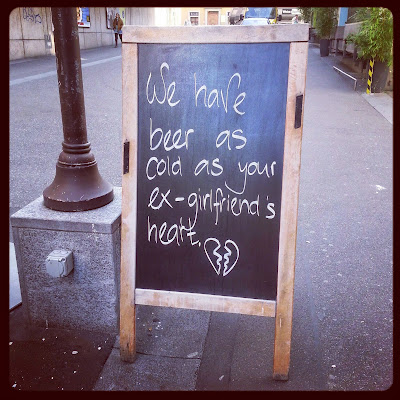 We have
beer as
cold as your
ex-girlfriend's
heart.